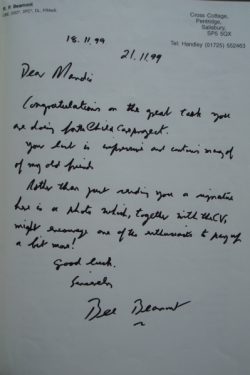 R. P. Beamont
CBE, DSO*, DFC*, DL, FRAeS.
Cross Cottage,
Pentridge,
Salisbury,
SP5 5QX
Tel: Handley (01725) 552463
18.11.99
21.11.99
Dear Mandi
Congratulations on the great task you
are doing for the Child Care project.
Your list is impressive and contains many of
of my old friends.
Rather than just sending you a signature
here is a photo which, together with the CV,
might encourage one of the enthusiasts to pay up
a bit more!
Good luck.
Sincerely
Bee Beamont